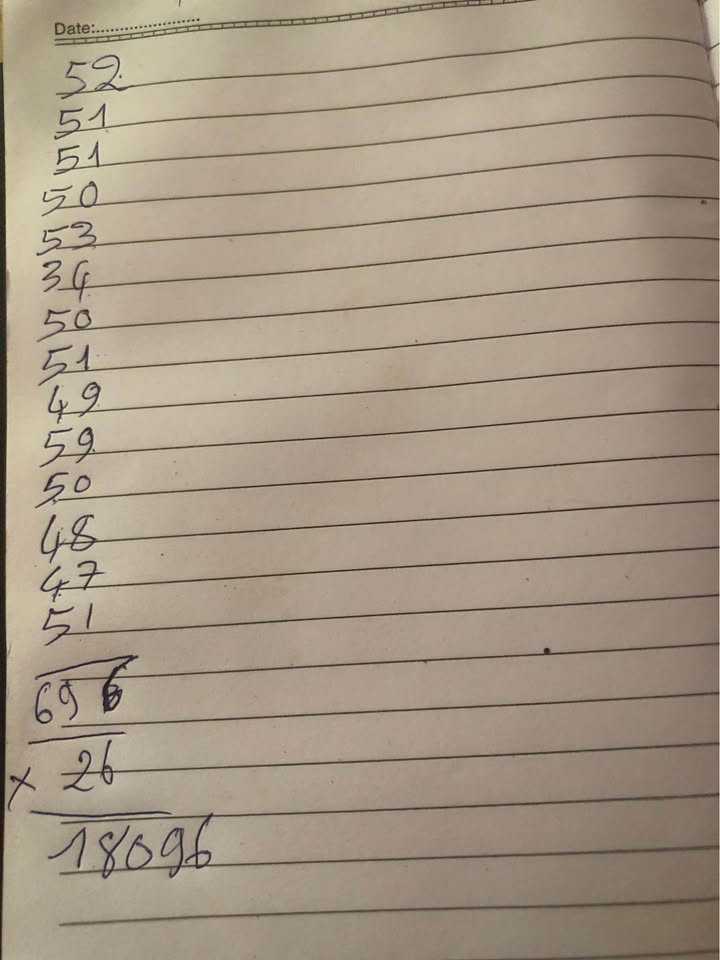 Date:....................
52
51
51
50
53
34
50
51
49
59
50
48
47
51
696
× 26
18096